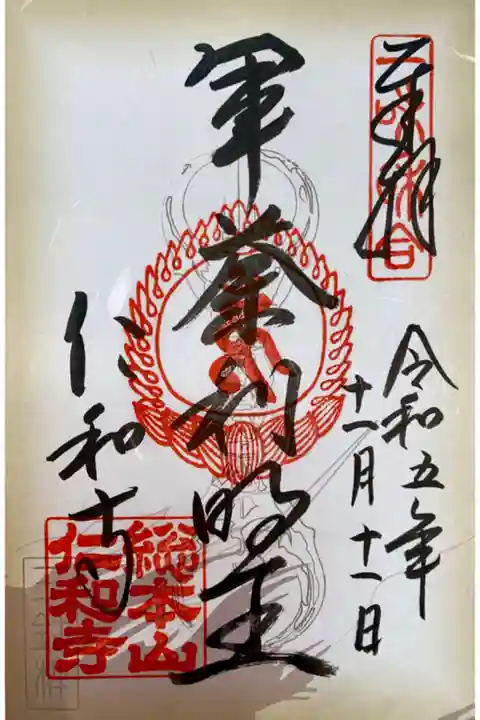 奉拝
令和五年
十一月十一日
軍荼利明王
仁和寺
総本山
仁和寺